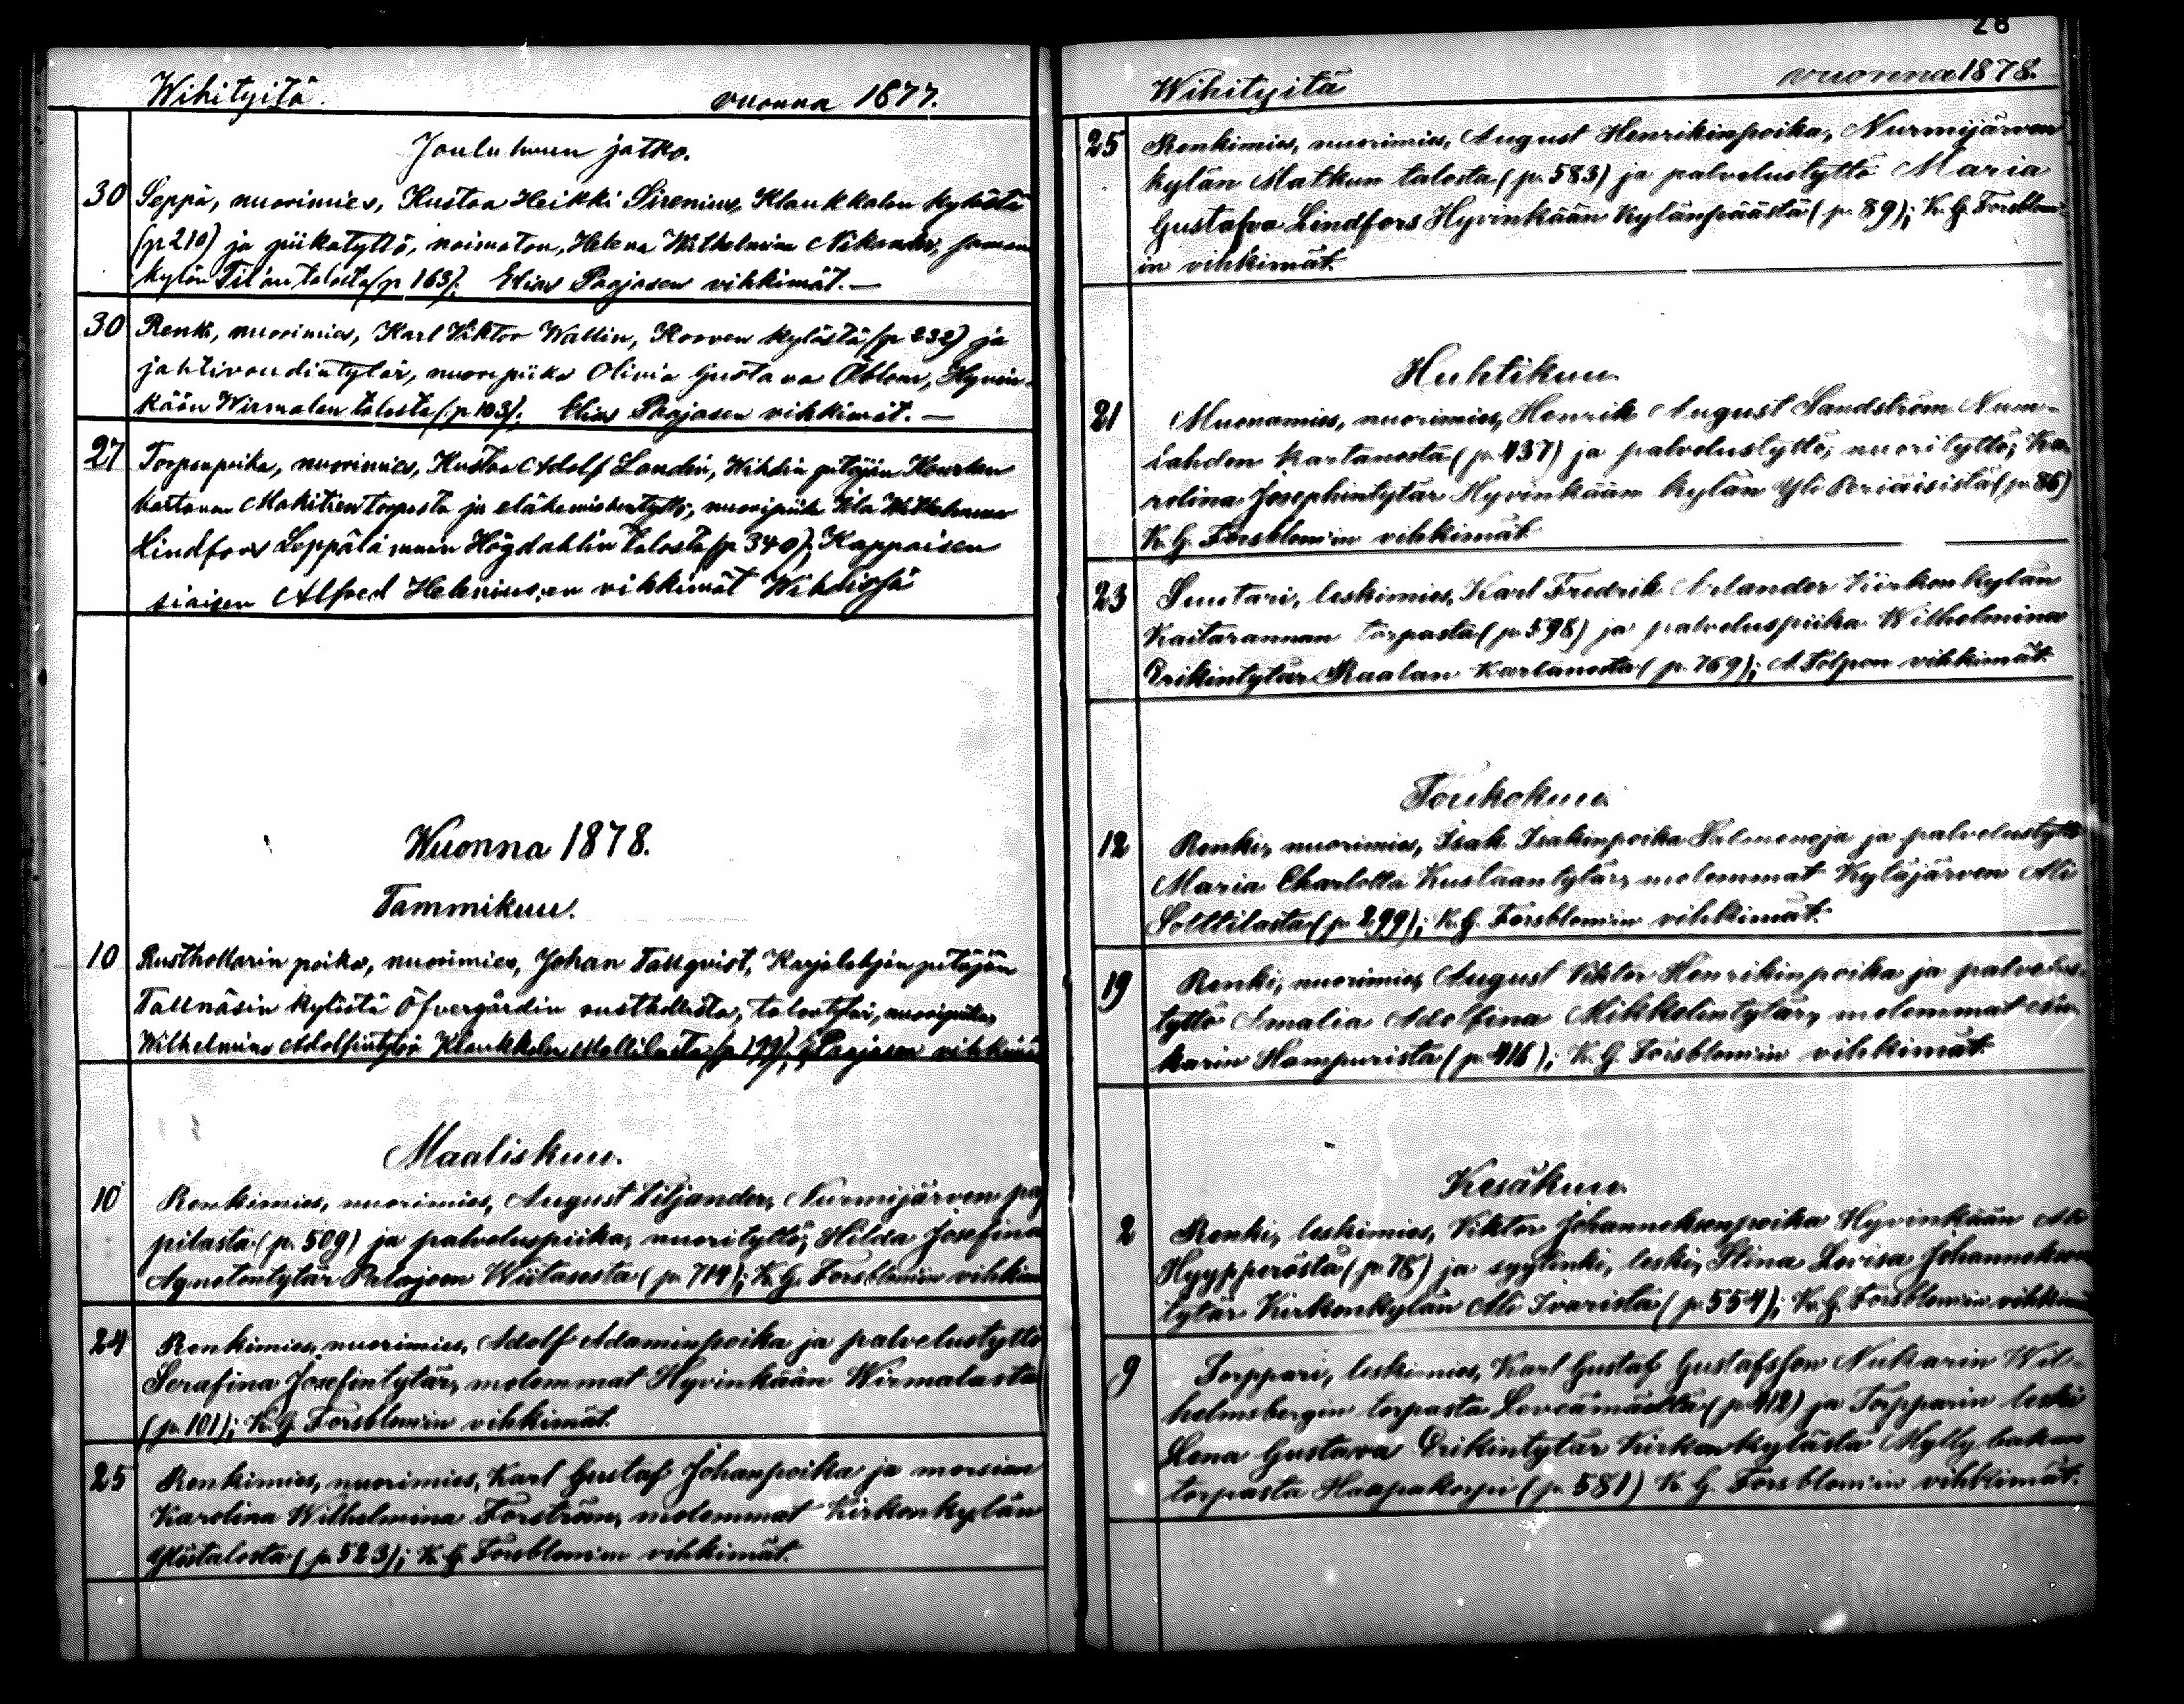 Wihityitä. vuonna 1877.
Joulukuun jatko.
30 Seppä, nuorimies, Kustaa Heikki Sirenius, Klaukkalan kylästä
(p 210) ja piikatyttö, naimaton, Helena Wilhelmina Nikander, saman
kylän Tilan talosta (p 163); Elias Paajasen vihkimät. —
30 Renki, nuorimies, Karl Viktor Wallin, Korven kylästä (p 232) ja
jahtivoudintytär, nuoripiika Olivia Gustava Öblom, Hyvin-
kään Wirmalan talosta (p 103); Elias Paajasen vihkimät. —
27 Torpanpoika, nuorimies, Kustaa Adolf Landin, Wihdin pitäjän
kartanon Mäkitien torpasta ja nuoripiika Ida Wilhelmina
Lindfors Leppälammin Högdahlin talosta (p 340); Kappaisen
siaisen Alfred Helenius,en vihkimät Wihdissä
Wuonna 1878.
Tammikuu.
10 Rusthollarin poika, nuorimies, Johan Tallqvist, Karjalohjan pitäjän
Tallnäsin kylästä Öfvergårdin rusthollista, talontytär, nuoripiika
Wilhelmina Adolfintytär Klaukkalan Mottilasta (p 199); E Paajasen vihkimät
Maaliskuu.
10 Renkimies, nuorimies, August Liljander, Nurmijärven pap
pilasta (p. 509) ja palveluspiika, nuorityttö; Hilda Josefina
Agnetontytär Palojoen Wiitasesta (p. 714); K. G. Forsblom'in vihkim
24 Renkimies, nuorimies, Adolf Adaminpoika ja palvelustyttö
Serafina Josefintytär, molemmat Hyvinkään Wirmalasta
(p. 101); K. G. Forsblom'in vihkimät.
25 Renkimies, nuorimies, Karl Gustaf Johanpoika ja morsian
Karolina Wilhelmina Forström, molemmat Kirkonkylän
Ylöstalosta (p. 523); K. G. Forsblom'in vihkimät.
28
Wihityitä vuonna 1878.
25 Renkimies, nuorimies, August Henrikinpoika, Nurmijärven
kylän Matkun talosta (p. 583) ja palvelustyttö Maria
Gustafva Lindfors Hyvinkään Kylänpäästä (p. 89); K. G. Forsblom'
in vihkimät.
Huhtikuu.
21 Muonamies, nuorimies, Henrik August Sandström Num-
lahden kartanosta (p. 437) ja palvelustyttö, nuorityttö, Ka-
rolina Josephintytär Hyvinkään kylän Yli Periäisistä (p. 86)
K. G. Forsblom'in vihkimät.
23 Suutari, leskimies, Karl Fredrik Arlander Kirkonkylän
Kaitarannan torpasta (p. 598) ja palveluspiika Wilhelmina
Erikintytär Raalan Kartanosta (p. 769); A. Tolpon vihkimät.
Toukokuu.
12 Renki, nuorimies, Isak Isakinpoika Salmenoja ja palvelustyttö
Maria Charlotta Kustaantytär, molemmat Kytäjärven Ali
Solttilasta (p. 299); K. G. Forsblom'in vihkimät.
19 Renki, nuorimies, August Viktor Henrikinpoika ja palvelus-
tyttö Amalia Adolfina Mikkelintytär, molemmat Nu
karin Hampurista (p. 416); K. G. Forsblom'in vihkimät.
Kesäkuu.
2 Renki, leskimies, Viktor Johanneksenpoika Hyvinkään Ali
Hyypperöstä (p. 78) ja syytinki, leski, Stina Lovisa Johanneksen
tytär Kirkonkylän Ali Ivarista (p. 554); K. G. Forsblom'in vihkimät
9 Torppari, leskimies, Karl Gustaf Gustafsson Nukarin Wil-
helmsbergin torpasta Leveämäeltä (p. 412) ja Torpparin leski
Lena Gustava Erikintytär Kirkonkylästä Myllytakan
torpasta Haapakorpi (p. 581) K. G. Forsblom'in vihkimät.